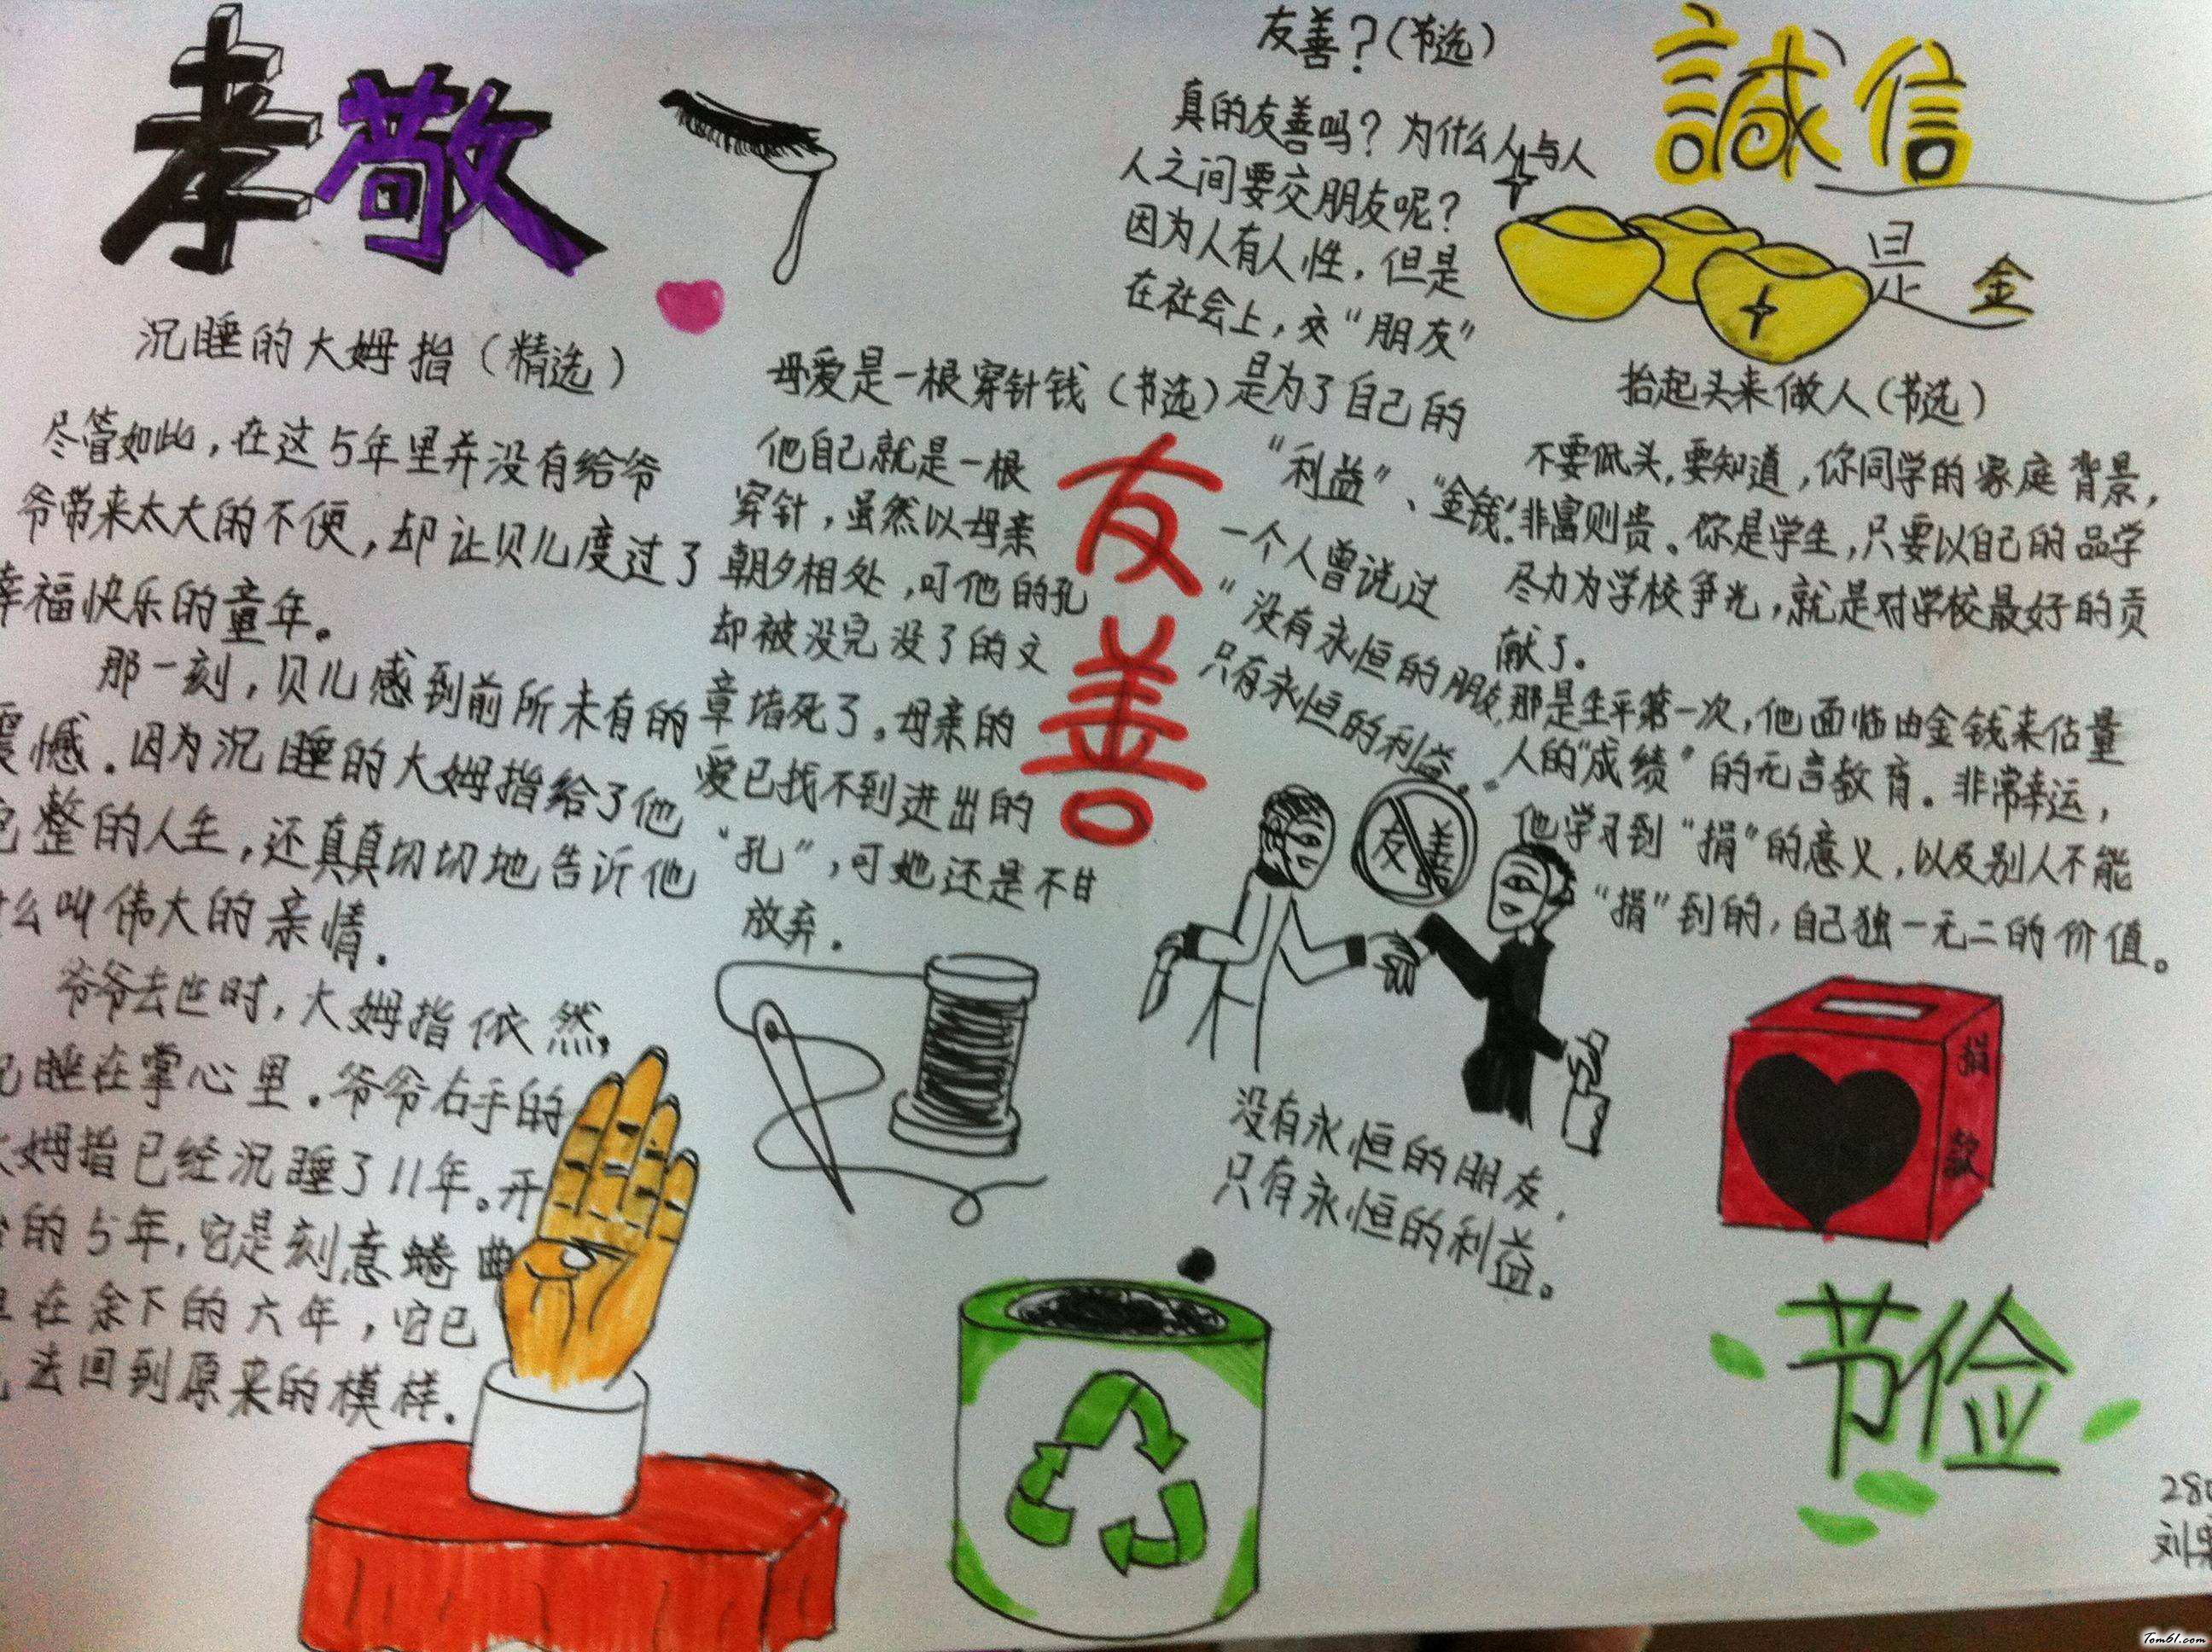 孝敬
沉睡的大姆指（精选）
尽管如此，在这5年里并没有给爷
爷带来太大的不便，却让贝儿度过了
幸福快乐的童年。
那一刻，贝儿感到前所未有的
震憾.因为沉睡的大姆指给了他
整的人生，还真真切切地告诉他
么叫伟大的亲情.
爷爷去世时，大姆指依然
睡在掌心里.爷爷右手的
姆指已经沉睡了11年。开
的5年，它是刻意蜷曲
在余下的六年，它已
法回到原来的模样.
母爱是一根穿针钱（节选）
他自己就是一根
穿针，虽然以母亲
朝夕相处，可他的孔
却被没完没了的文
章堵死了。母亲的
爱已找不到进出的
“孔”，可她还是不甘
放弃.
友善
友善？（节选）
真的友善吗？为什么人与人
人之间要交朋友呢？
因为人有人性，但是
在社会上，交“朋友”
是为了自己的
“利益”、“金钱”.
一个人曾说过
“没有永恒的朋友，
只有永恒的利益。”
友善
没有永恒的朋友，
只有永恒的利益。
誠信
是金
抬起头来做人（节选）
不要低头，要知道，你同学的家庭背景，
非富则贵。你是学生，只要以自己的品学
尽力为学校争光，就是对学校最好的贡
献了。
那是生平第一次，他面临由金钱来估量
人的“成绩”的无言教育。非常幸运，
他学习到“捐”的意义，以及别人不能
“捐”到的，自己独一无二的价值。
捐款
节俭
280
刘
Tom61.com